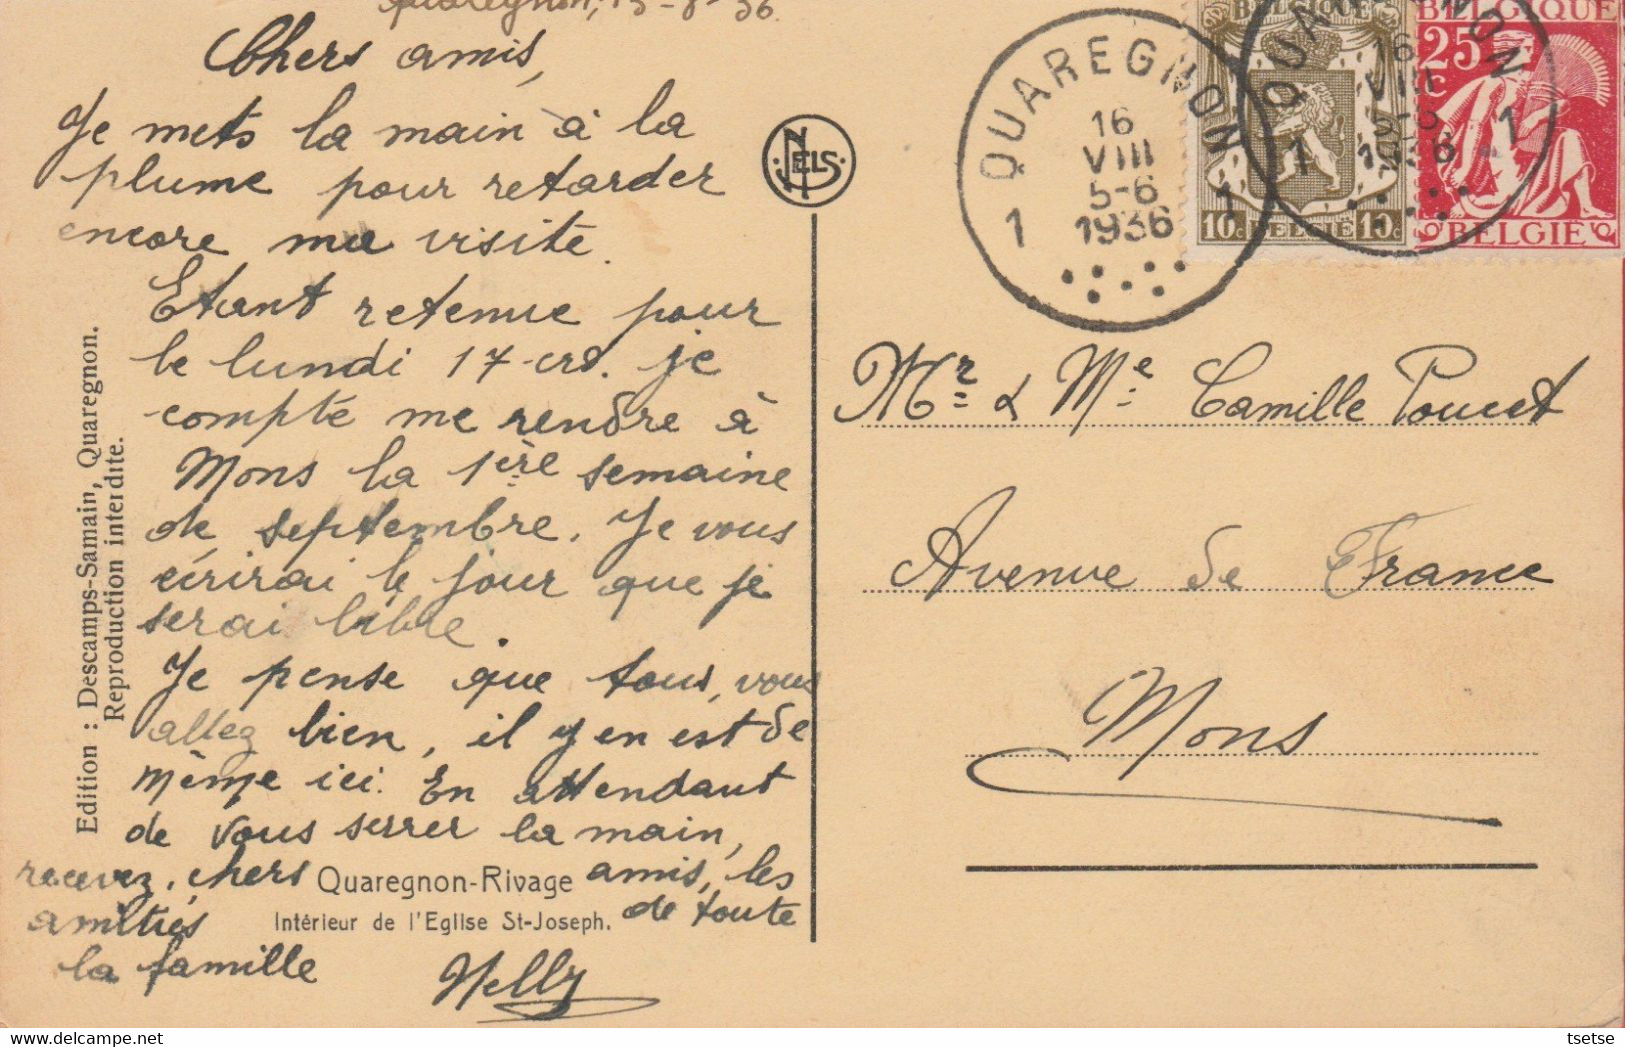 Quaregnon, 15-8-36
Chers amis,
Je mets la main à la
plume pour retarder
encore ma visite.
Etant retenue pour
le lundi 17 crt. je
compte me rendre à
Mons la 1ère semaine
de septembre. Je vous
écrirai le jour que je
serai libre.
Je pense que tous, vous
allez bien, il y en est de
même ici. En attendant
de vous serrer la main,
recevez, chers amis, les
amitiés de toute
la famille
Nelly
Edition : Descamps-Samain, Quaregnon.
Reproduction interdite.
Quaregnon-Rivage
Intérieur de l'Eglise St-Joseph.
NELS
QUAREGNON
16
VIII
5-6
1936
1 1
BELGIQUE
10c BELGIE 10c
QUAREGNON
16
VIII
1 1
BELGIQUE
25
c
BELGIE
Mr & Me Camille Poucet
Avenue de France
Mons
tsetse